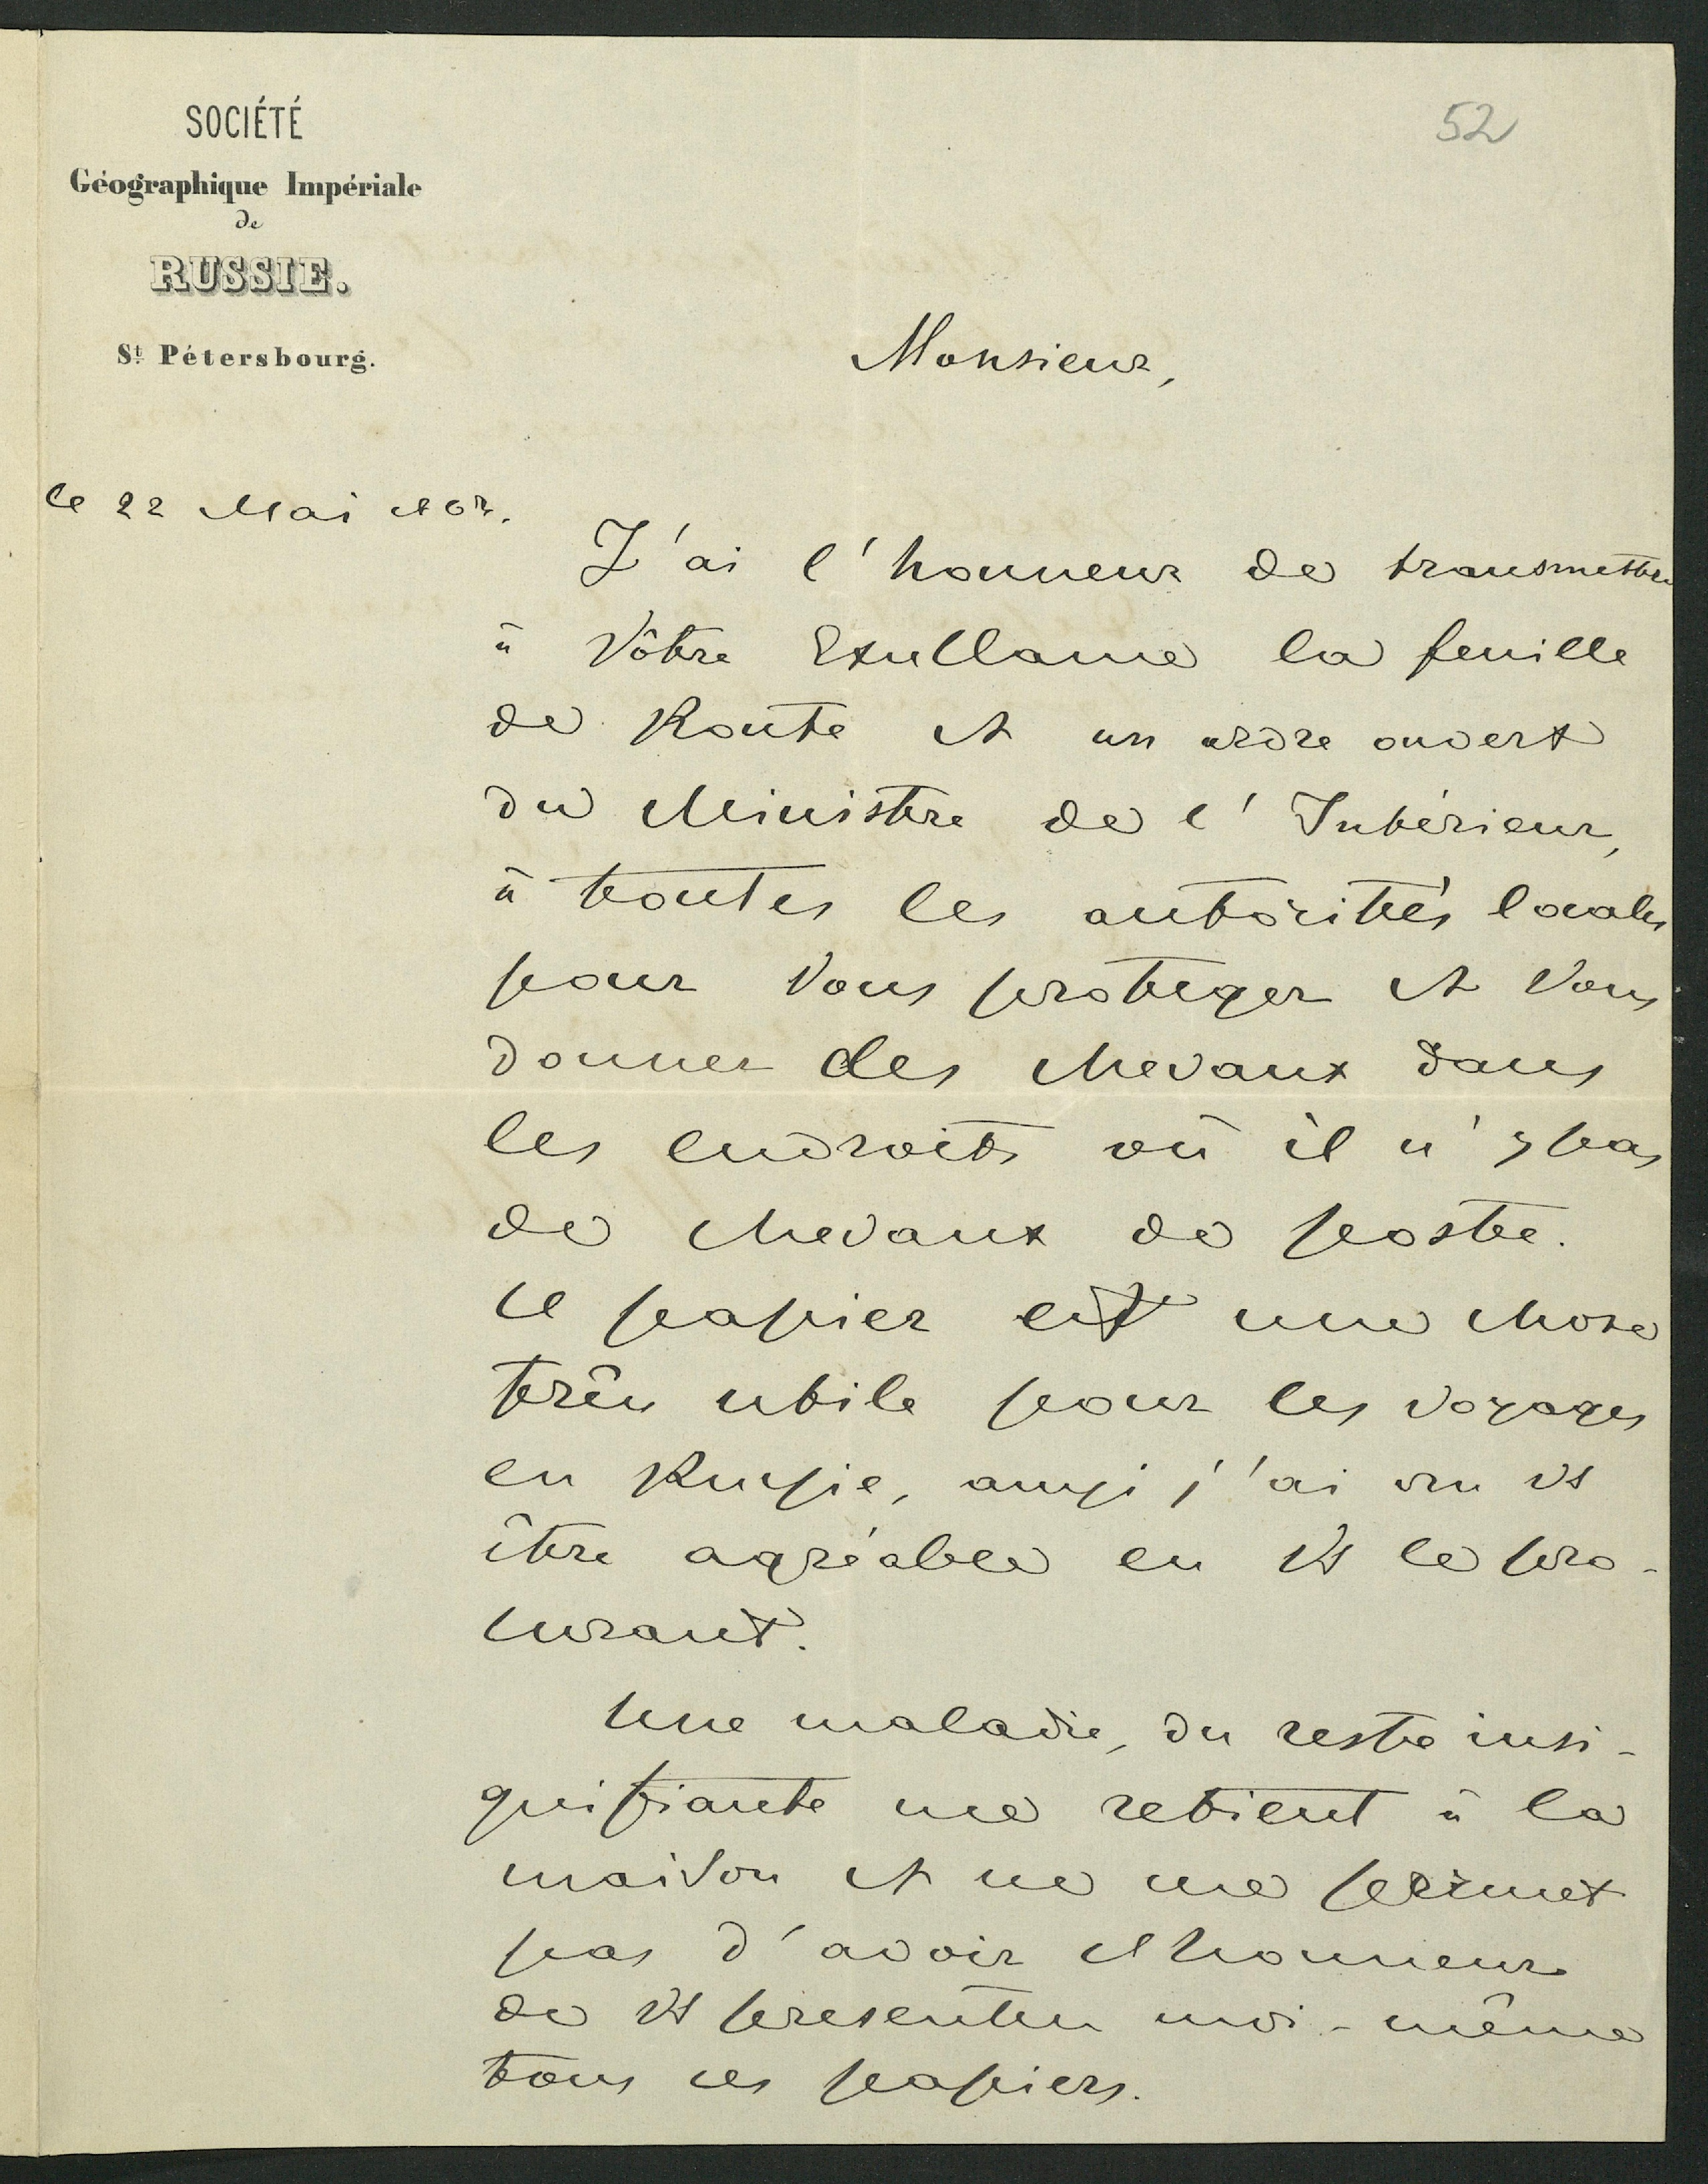 52
SOCIÉTÉ
Géographique Impériale
de
RUSSIE.
St Pétersbourg.
Monsieur,
le 22 Mai
J'ai l'honneur de transmettre
à Vôtre Excellance la feuille
de Route et un ordre ouvert
du Ministre de l'Intérieur,
à toutes les autorités locales
pour Vous proteger et Vous
donner des chevaux dans
les endroits où il n'y pas
de chevaux de poste.
Ce papier est une chose
très utile pour les voyages
en Russie, aussi j'ai cru vs
être agréable en Vs le pro-
curant.
Une maladie, du reste insi-
gnifiante me retient à la
maison et ne me permet
pas d'avoir l'honneur
de Vs presenter moi-même
tous ces papiers.